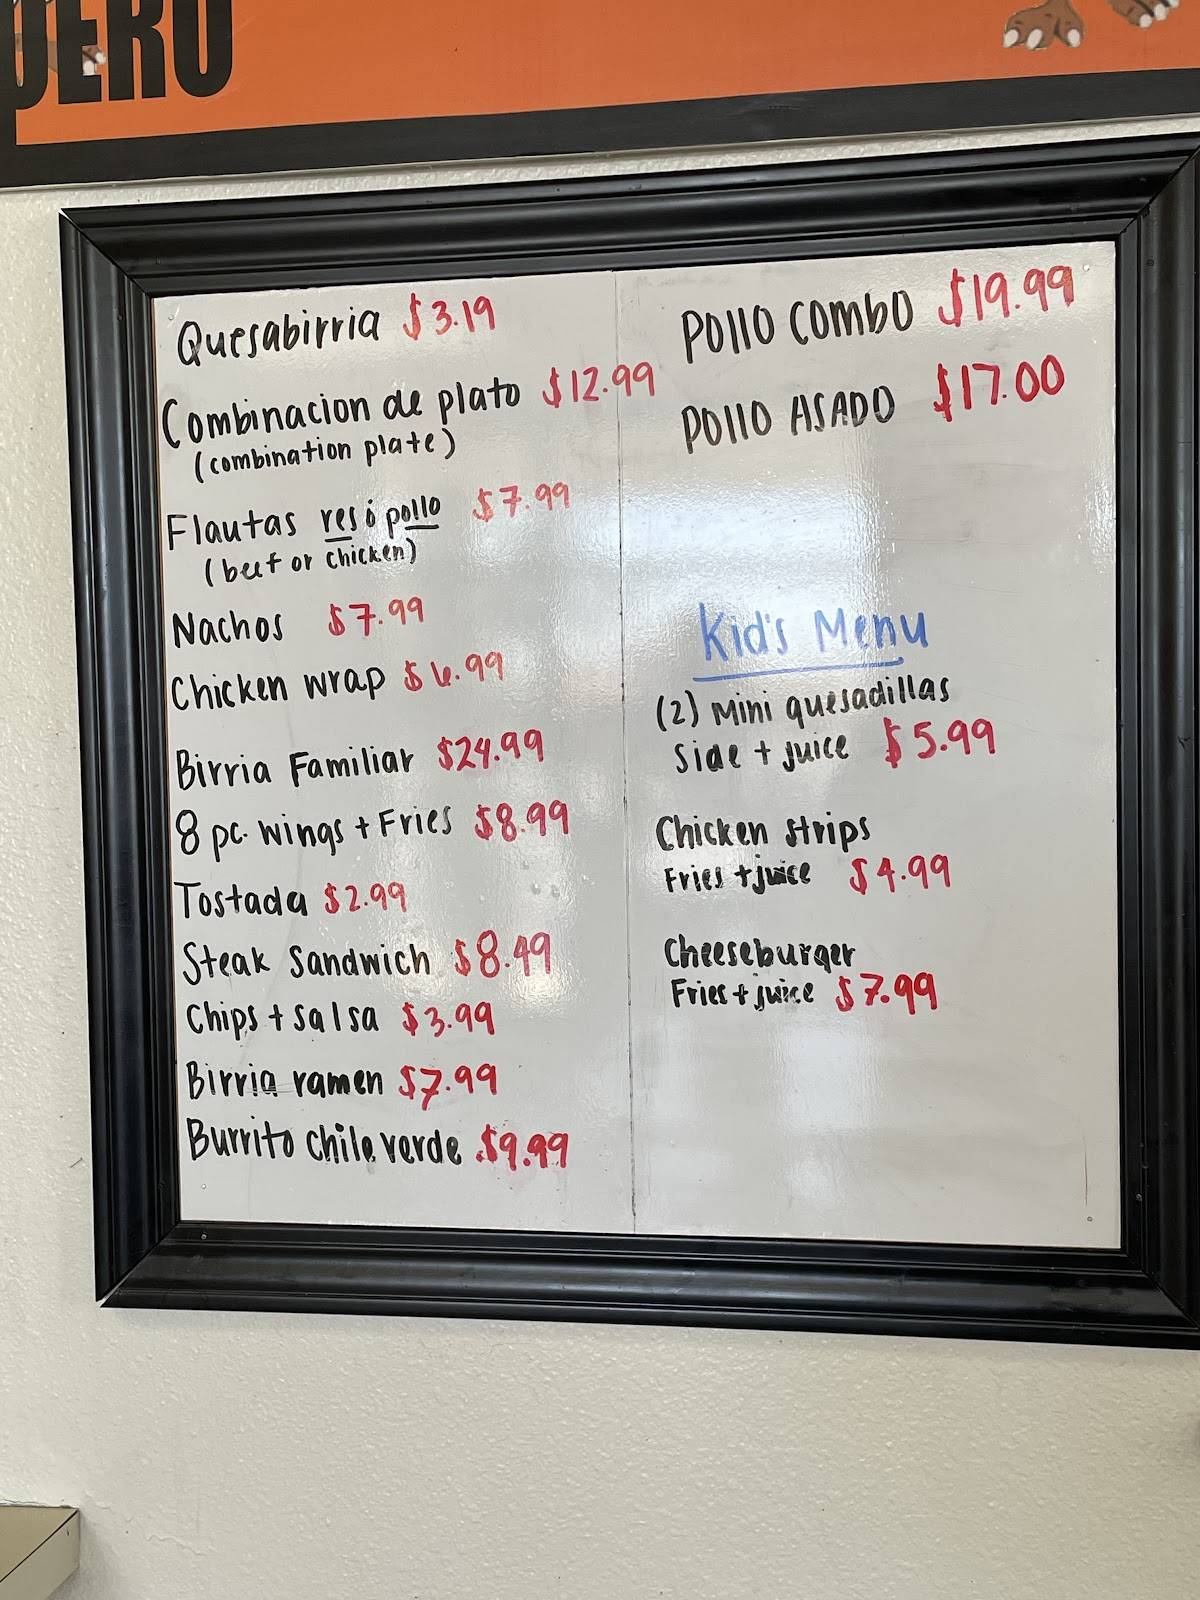 PERO
Quesabirria $3.19
Combinacion de plato $12.99
(combination plate)
Flautas res ó pollo $7.99
(beef or chicken)
Nachos $7.99
Chicken wrap $6.99
Birria Familiar $24.99
8 pc. wings + Fries $8.99
Tostada $2.99
Steak Sandwich $8.49
Chips + Salsa $3.99
Birria ramen $7.99
Burrito Chile verde $9.99
Pollo Combo $19.99
Pollo ASADO $17.00
Kid's Menu
(2) Mini quesadillas
Side + juice $5.99
Chicken strips
Fries + juice $4.99
Cheeseburger
Fries + juice $7.99